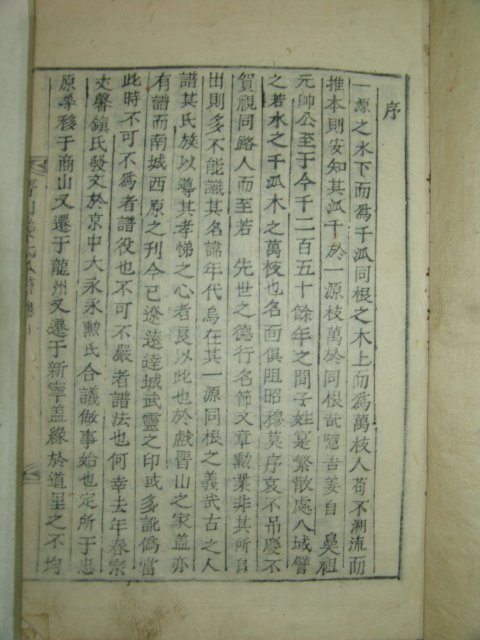 序
一源之水下而爲千派同根之木上而爲萬枝人苟不溯流而
推本則安知其派千於一源枝萬於同根哉噫吾姜自 鼻祖
元帥公至于今千二百五十餘年之間子姓寔繁散處八域譬
之若水之千派木之萬枝也名面俱阻昭穆莫序哀不吊慶不
賀視同路人而至若 先世之德行名節文章勳業非其所自
出則多不能識其名諱年代烏在其一源同根之義哉古之人
譜其氏族以導其孝悌之心者良以此也於戲晋山之家盖亦
有譜而南城西原之刊今已遼遠達城武靈之印或多訛僞當
此時不可不爲者譜役也不可不嚴者譜法也何幸去年春宗
丈馨鎭氏發文於京中大永永勳氏合議做事始也定所于忠
原尋移于商山又遷于龍州又遷于新寧盖緣於道里之不均